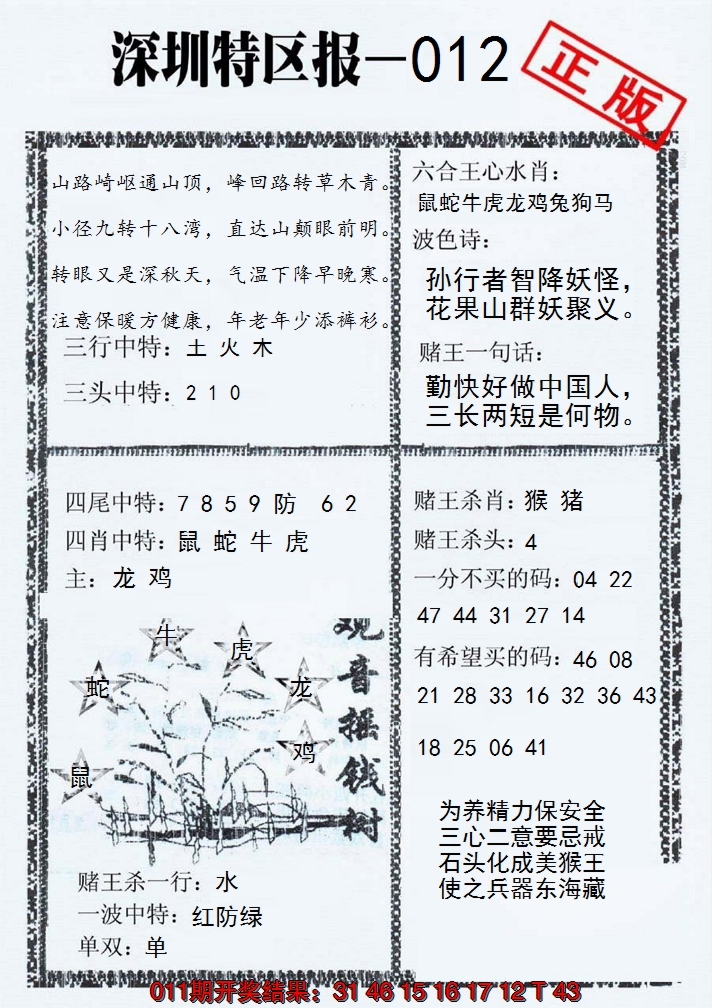 深圳特区报—012
正版
山路崎岖通山顶，峰回路转草木青。
小径九转十八湾，直达山颠眼前明。
转眼又是深秋天，气温下降早晚寒。
注意保暖方健康，年老年少添裤衫。
三行中特：土 火 木
三头中特：2 1 0
六合王心水肖：
鼠蛇牛虎龙鸡兔狗马
波色诗：
孙行者智降妖怪，
花果山群妖聚义。
赌王一句话：
勤快好做中国人，
三长两短是何物。
四尾中特：7 8 5 9 防 6 2
四肖中特：鼠 蛇 牛 虎
主：龙 鸡
牛
虎
蛇
龙
鸡
鼠
观音摇钱树
赌王杀一行：水
一波中特：红防绿
单双：单
赌王杀肖：猴 猪
赌王杀头：4
一分不买的码：04 22
47 44 31 27 14
有希望买的码：46 08
21 28 33 16 32 36 43
18 25 06 41
为养精力保安全
三心二意要忌戒
石头化成美猴王
使之兵器东海藏
011期开奖结果：31 46 15 16 17 12 T 43